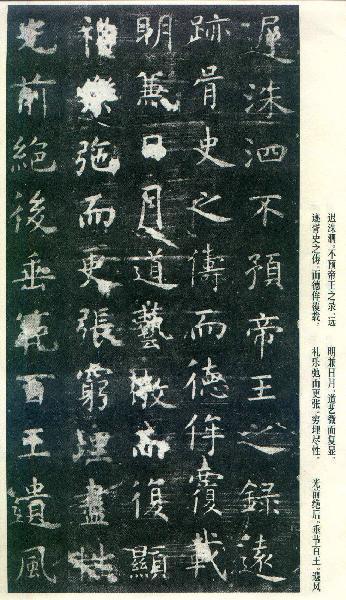 迟洙泗。不预帝王之录。远
迹胥史之俦。而德侔覆载.
明兼日月。道艺微而复显.
礼乐弛而更张。穷理尽性。
光前绝后。垂范百王。遗风
遲洙泗不預帝王之錄遠
跡胥史之儔而德侔覆載
明兼日月道藝微而復顯
禮樂弛而更張窮理盡性
光前絕後垂範百王遺風